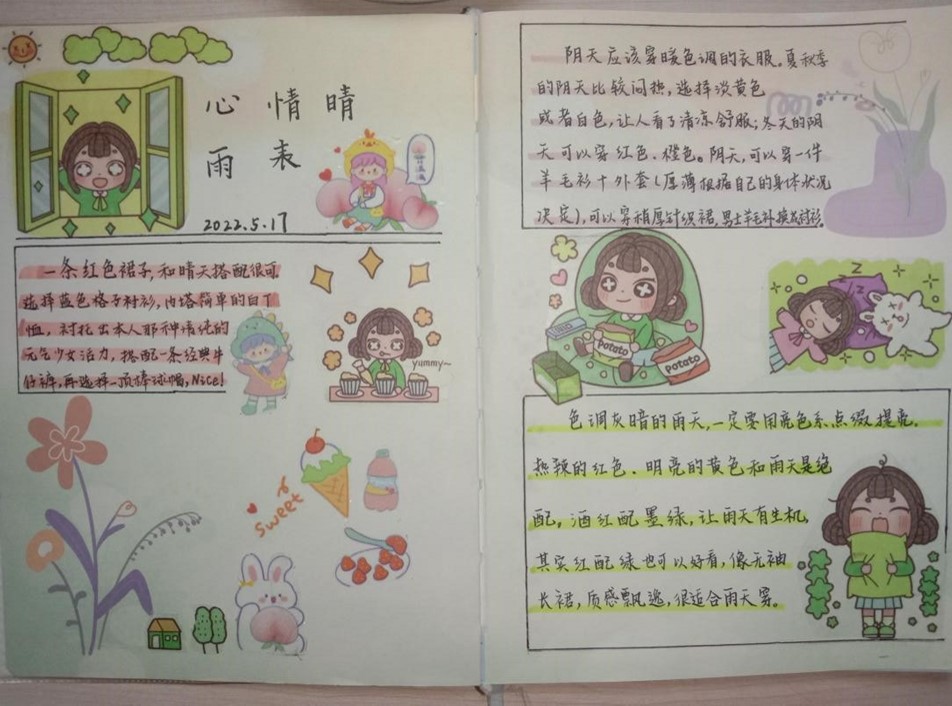 心情晴
雨表
2022.5.17
一条红色裙子,和晴天搭配很可
选择蓝色格子衬衫,内搭简单的白T
恤,衬托出本人那种清纯的
元气少女活力,搭配一条经典牛
仔裤,再选择一顶棒球帽,Nice!
yummy~
sweet
阴天应该穿暖色调的衣服。夏秋季
的阴天比较闷热,选择淡黄色
或者白色,让人看了清凉舒服;冬天的阴
天可以穿红色、橙色。阴天,可以穿一件
羊毛衫+外套(厚薄根据自己的身体状况
决定),可以穿稍厚针织裙。男士羊毛衫换成衬衫。
Z
Z
potato
potato
色调灰暗的雨天,一定要用亮色系点缀提亮。
热辣的红色、明亮的黄色和雨天是绝
配。酒红配墨绿,让雨天有生机。
其实红配绿也可以好看,像无袖
长裙,质感飘逸,很适合雨天穿。